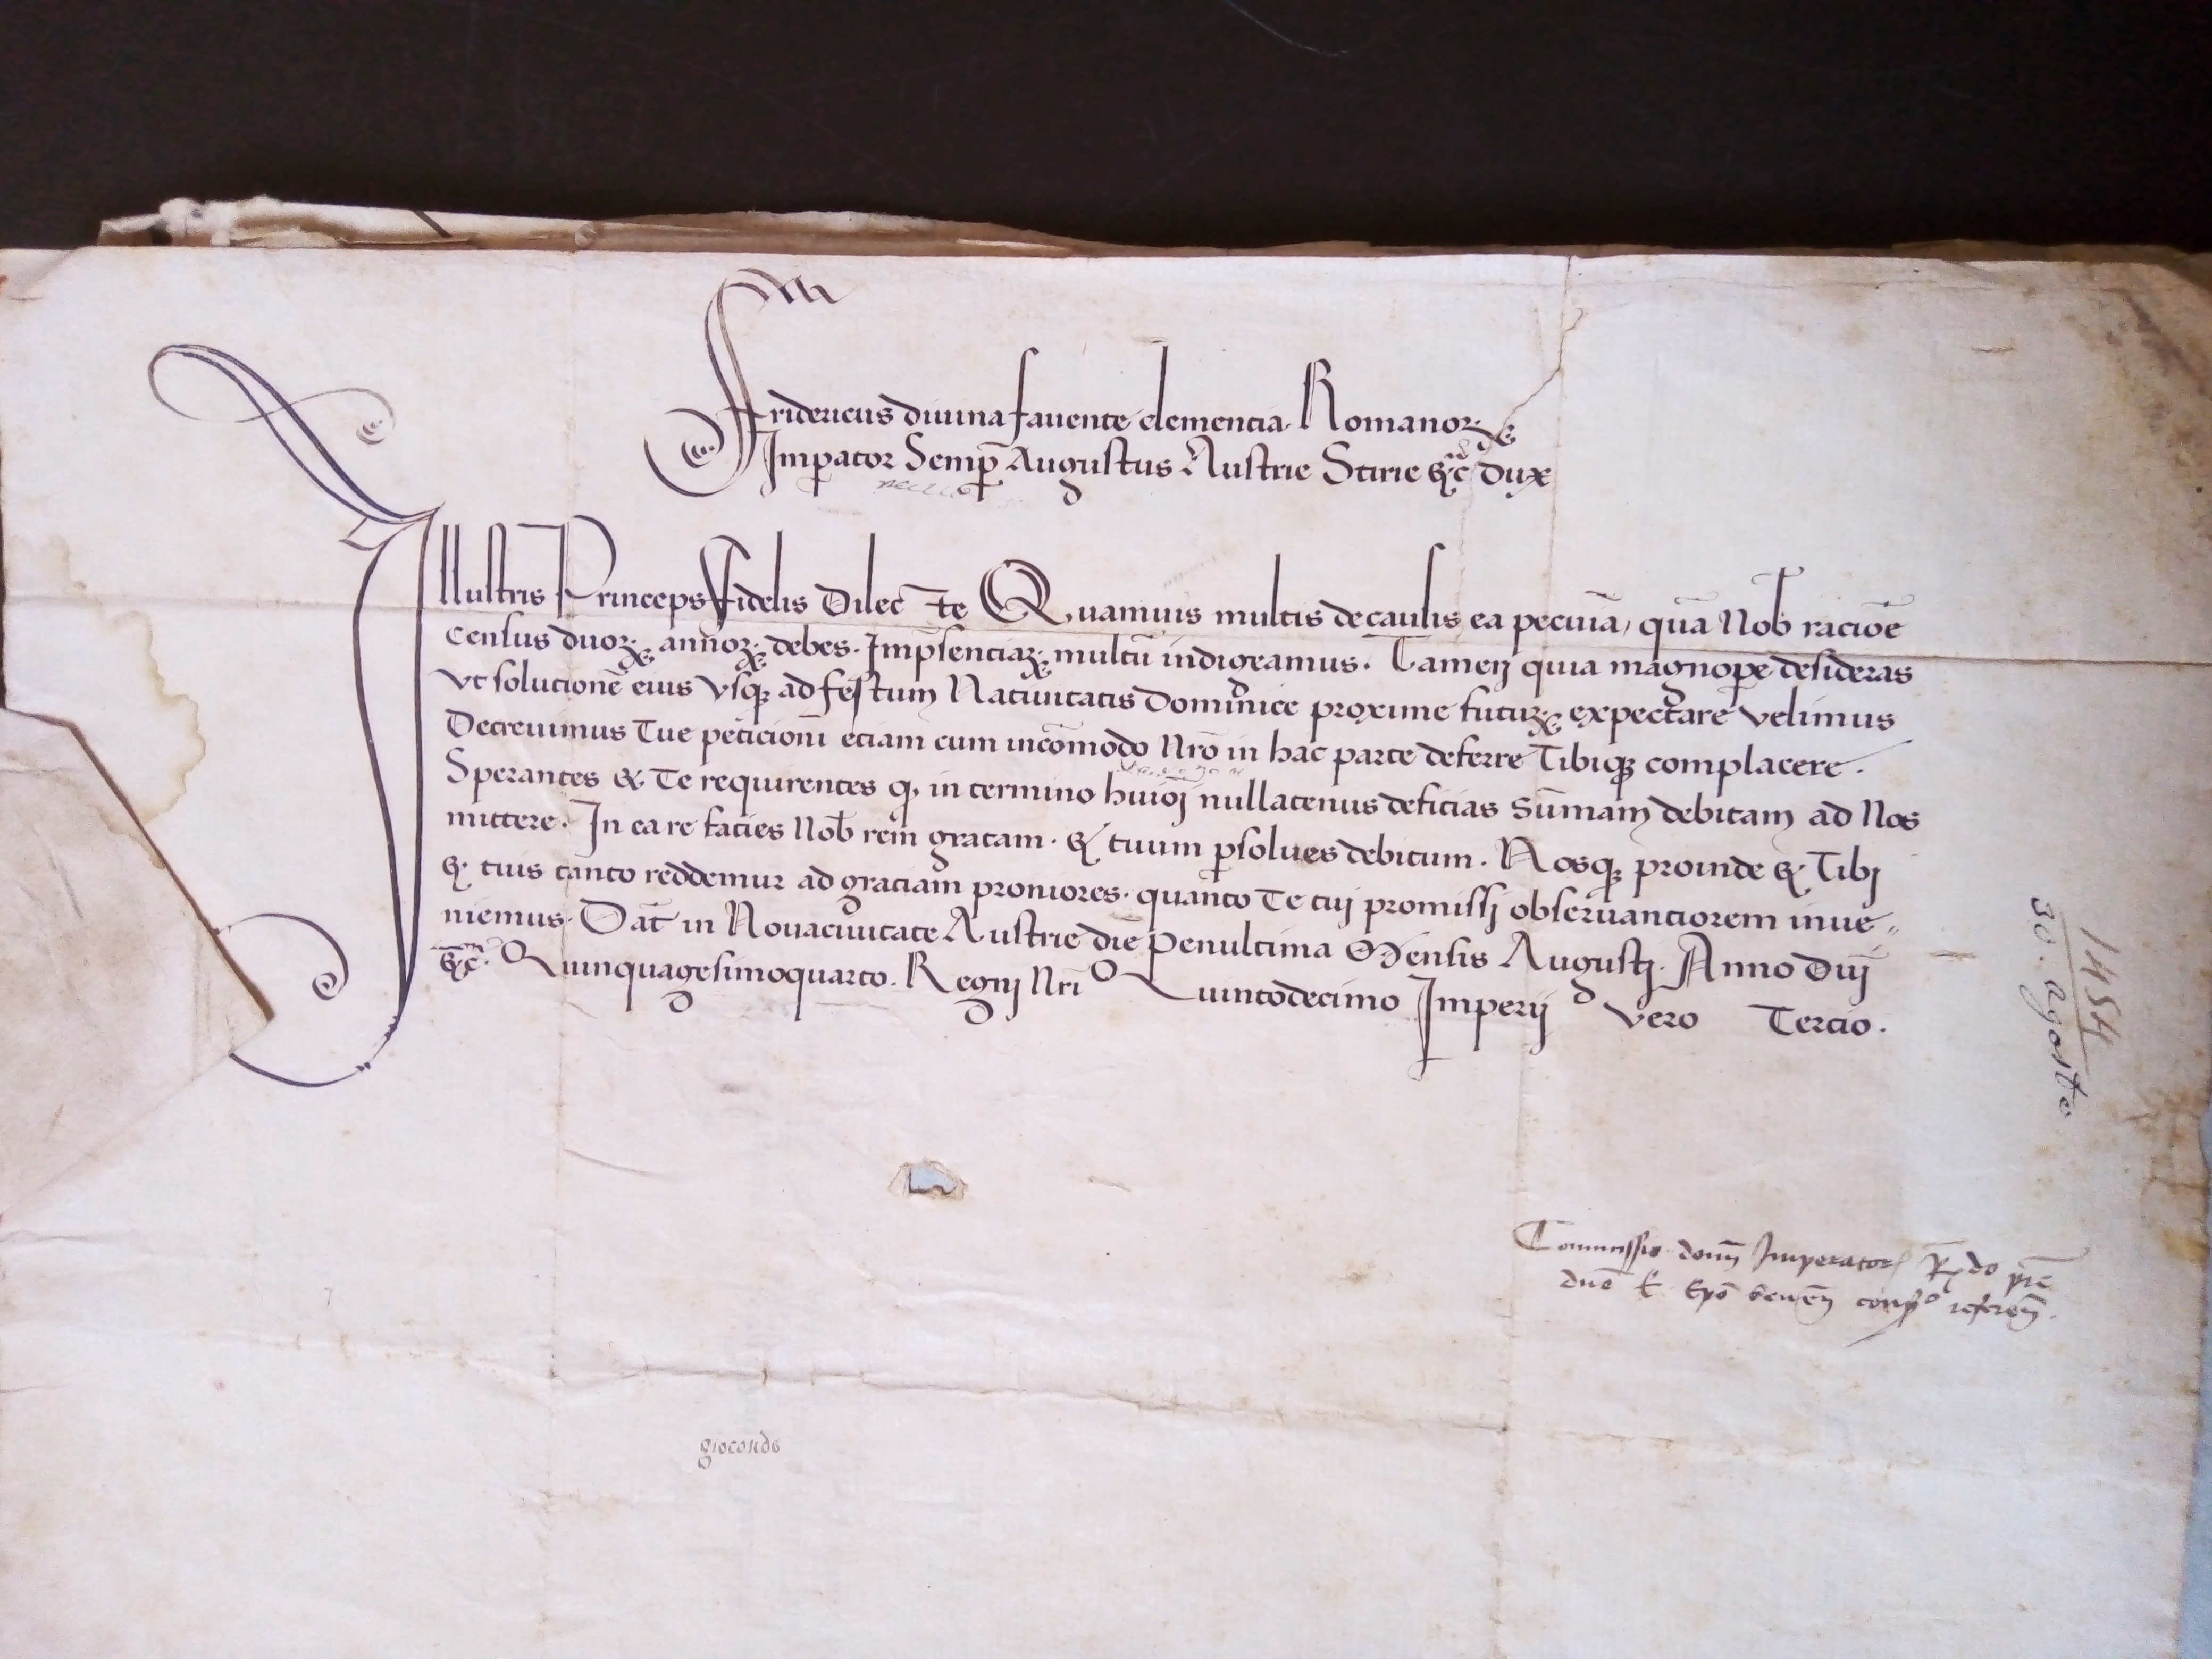 Fridericus diuina fauente clemencia Romanorꝝ
Imꝑator Semꝑ Augustus Austrie Stirie &c̄ dux
Illustris Princeps fidelis Dilect̄e Quamuis multis de causis ea pecunīa, quā Nob̄ raciōē
Census duorꝝ annorꝝ debes. Imp̄senciarꝝ multū indigeamus. Tamen quia magnoꝑe desideras
vt solucionē eius vsqꝫ ad festum Natiuitatis Dominice proxime futurꝝ expectare velimus
Decreuimus Tue peticioni eciam cum incōmodo Nrō in hac parte deferre Tibiqꝫ complacere.
Sperantes & Te requirentes ꝙ in termino huiōi nullatenus deficias Sūmam debitam ad Nos
mittere. In ea re facies Nob̄ rem gratam. & tuum ꝑsolues debitum. Nosqꝫ proinde & Tibi
& tuis tanto reddemur ad graciam proniores. quanto Te tuj promissj obseruanciorem inue„
niemus. Dat̄ in Nouaciuitate Austrie die Penultima Mensis Augustj. Anno Dnj̄
&c̄. Quinquagesimoquarto. Regnj Nrī Quintodecimo Imperij vero Tercio.
1454
30. agosto
Commissio domī Imperator̄ R̄do pr̄e
dnō Epō referen̄.
giocondo